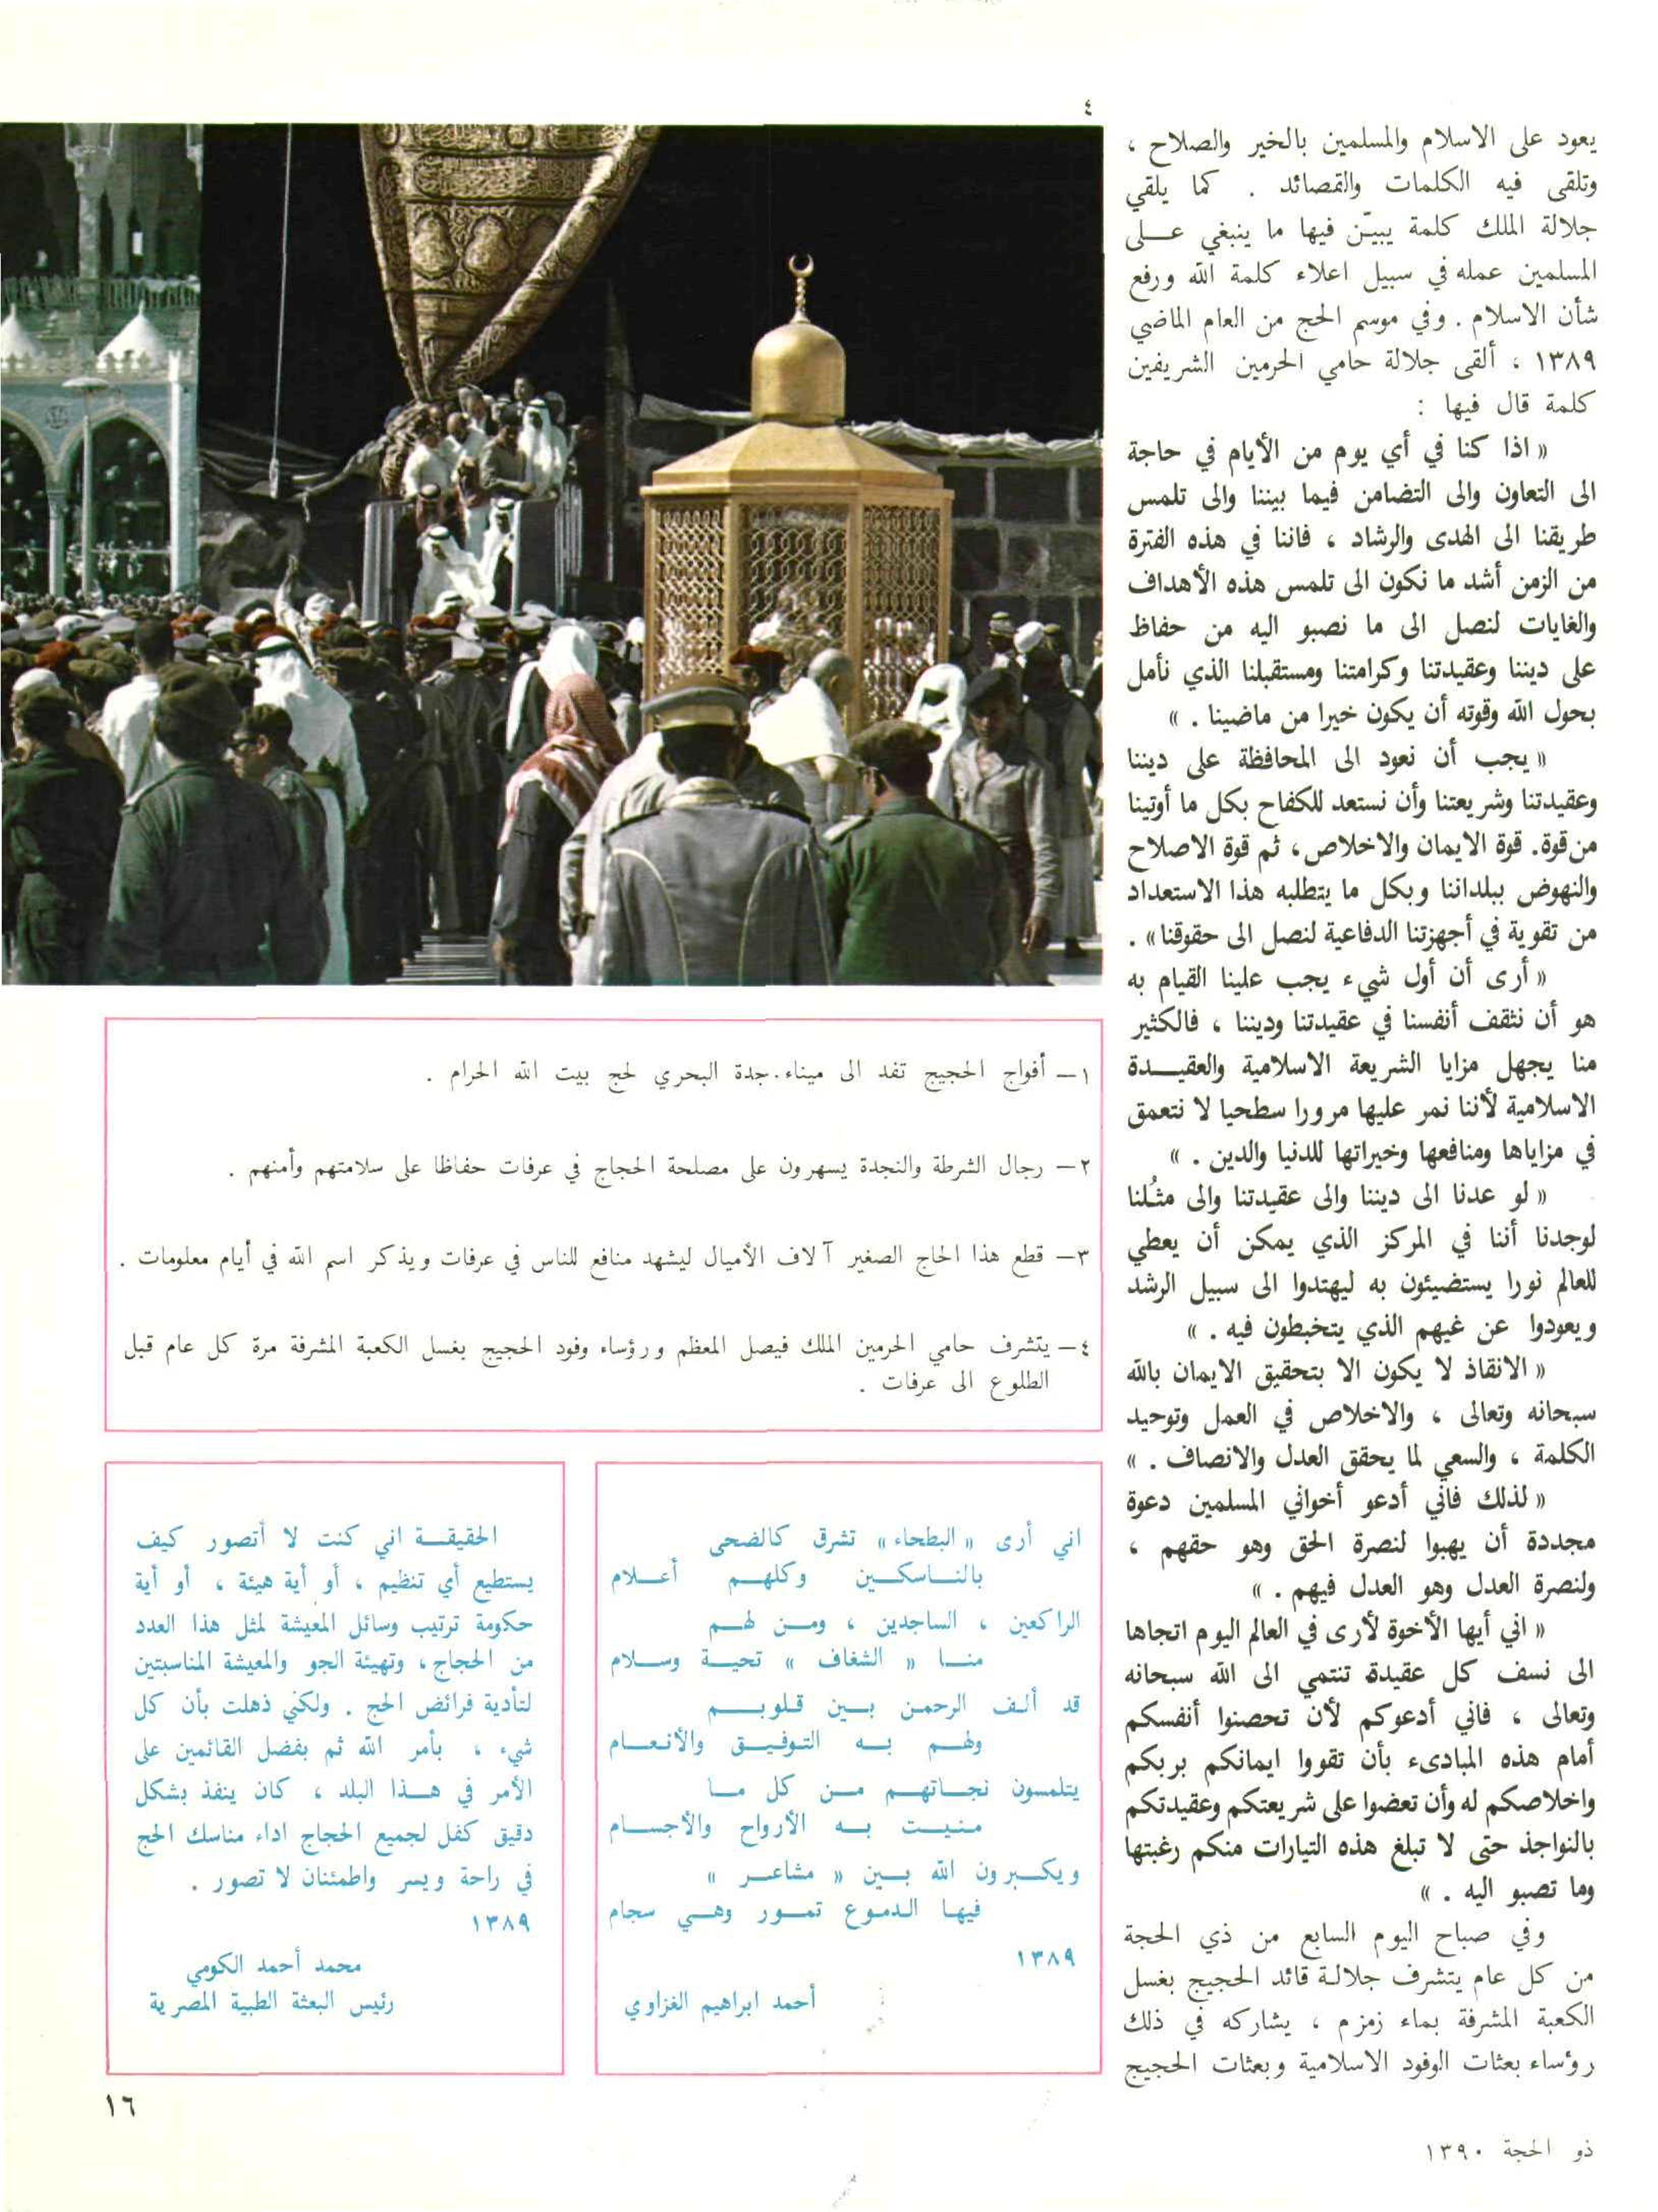 ٤
يعود على الاسلام والمسلمين بالخير والصلاح ،
وتلقى فيه الكلمات والقصائد . كما يلقي
جلالة الملك كلمة يبيّن فيها ما ينبغي عــلى
المسلمين عمله في سبيل اعلاء كلمة الله ورفع
شأن الاسلام . وفي موسم الحج من العام الماضي
١٣٨٩ ، ألقى جلالة حامي الحرمين الشريفين
كلمة قال فيها :
« اذا كنا في أي يوم من الأيام في حاجة
الى التعاون والى التضامن فيما بيننا والى تلمس
طريقنا الى الهدى والرشاد ، فاننا في هذه الفترة
من الزمن أشد ما نكون الى تلمس هذه الأهداف
والغايات لنصل الى ما نصبو اليه من حفاظ
على ديننا وعقيدتنا وكرامتنا ومستقبلنا الذي نأمل
بحول الله وقوته أن يكون خيرا من ماضينا . »
« يجب أن نعود الى المحافظة على ديننا
وعقيدتنا وشريعتنا وأن نستعد للكفاح بكل ما أوتينا
من قوة. قوة الايمان والاخلاص، ثم قوة الاصلاح
والنهوض ببلداننا وبكل ما يتطلبه هذا الاستعداد
من تقوية في أجهزتنا الدفاعية لنصل الى حقوقنا» .
« أرى أن أول شيء يجب علينا القيام به
هو أن نثقف أنفسنا في عقيدتنا وديننا ، فالكثير
منا يجهل مزايا الشريعة الاسلامية والعقيــدة
الاسلامية لأننا نمر عليها مرورا سطحيا لا نتعمق
في مزاياها ومنافعها وخيراتها للدنيا والدين . »
« لو عدنا الى ديننا والى عقيدتنا والى مثُلنا
لوجدنا أننا في المركز الذي يمكن أن يعطي
للعالم نورا يستضيئون به ليهتدوا الى سبيل الرشد
ويعودوا عن غيهم الذي يتخبطون فيه . »
« الانقاذ لا يكون الا بتحقيق الايمان بالله
سبحانه وتعالى ، والاخلاص في العمل وتوحيد
الكلمة ، والسعي لما يحقق العدل والانصاف . »
« لذلك فاني أدعو أخواني المسلمين دعوة
مجددة أن يهبوا لنصرة الحق وهو حقهم ،
ولنصرة العدل وهو العدل فيهم . »
« اني أيها الأخوة لأرى في العالم اليوم اتجاها
الى نسف كل عقيدة تنتمي الى الله سبحانه
وتعالى ، فاني أدعوكم لأن تحصنوا أنفسكم
أمام هذه المبادىء بأن تقووا ايمانكم بربكم
واخلاصكم له وأن تعضوا على شريعتكم وعقيدتكم
بالنواجذ حتى لا تبلغ هذه التيارات منكم رغبتها
وما تصبو اليه . »
وفي صباح اليوم السابع من ذي الحجة
من كل عام يتشرف جلالة قائد الحجيج بغسل
الكعبة المشرفة بماء زمزم ، يشاركه في ذلك
رؤساء بعثات الوفود الاسلامية وبعثات الحجيج
١– أفواج الحجيج تفد الى ميناء جدة البحري لحج بيت الله الحرام .
٢– رجال الشرطة والنجدة يسهرون على مصلحة الحجاج في عرفات حفاظا على سلامتهم وأمنهم .
٣– قطع هذا الحاج الصغير آلاف الأميال ليشهد منافع للناس في عرفات ويذكر اسم الله في أيام معلومات .
٤– يتشرف حامي الحرمين الملك فيصل المعظم ورؤساء وفود الحجيج بغسل الكعبة المشرفة مرة كل عام قبل
الطلوع الى عرفات .
اني أرى « البطحاء » تشرق كالضحى
بالنــاسكــين وكلهــم أعــلام
الراكعين ، الساجدين ، ومــن لهــم
منــا « الشغاف » تحيــة وســلام
قد ألـف الرحمـن بــين قـلوبــهـم
ولهــم بــه التـوفيــق والأنـعــام
يتلمسون نجــاتهــم مــن كل مــا
منـيــت بــه الأرواح والأجســام
ويكــبرون الله بــين « مشاعــر »
فيهـا الـدمـوع تمــور وهــي سجام
١٣٨٩
أحمد ابراهيم الغزاوي
الحقيقــة اني كنت لا أتصور كيف
يستطيع أي تنظيم ، أو أية هيئة ، أو أية
حكومة ترتيب وسائل المعيشة لمثل هذا العدد
من الحجاج، وتهيئة الجو والمعيشة المناسبتين
لتأدية فرائض الحج . ولكني ذهلت بأن كل
شيء ، بأمر الله ثم بفضل القائمين على
الأمر في هــذا البلد ، كان ينفذ بشكل
دقيق كفل لجميع الحجاج اداء مناسك الحج
في راحة ويسر واطمئنان لا تصور .
١٣٨٩
محمد أحمد الكومي
رئيس البعثة الطبية المصرية
١٦
ذو الحجة ١٣٩٠